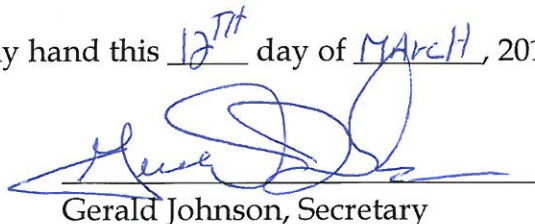 y hand this 12TH day of MArcH, 201
Gerald Johnson, Secretary